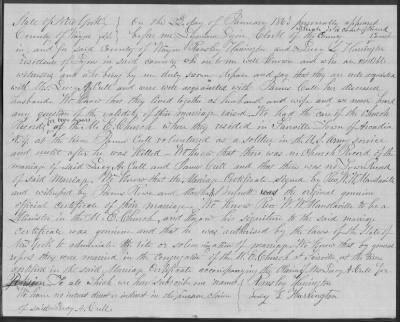 State of New York } On the 23 day of January 1863 personally appeared
County of Wayne SS. } before me Clerk of the County
in and for said County of Wayne Ransley Harrington and Lucy L. Harrington
residents of Lyons in said county who are to me well known and who are credible
witnesses and who being by me duly sworn depose and say that they are well acquainted
with Mrs. Lucy A. Cull and were well acquainted with James Cull her deceased
husband. We know that they lived together as husband and wife and we never heard
any question of the validity of their marriage raised. We had the care of the Church
Records of the M.E. Church when they resided in Fairville Town of Arcadia
N.Y. at the time James Cull volunteered as a soldier in the U.S. Army service
and until after he was killed. We know that there was no Church Record of the
marriage of said Lucy A. Cull and James Cull and that there was no Town Record
of said Marriage. We know that the Marriage Certificate signed by Rev. W. W. Mandeville
and witnessed by James Rose and Martha was the original genuine
official certificate of their marriage. We know Rev. W. W. Mandeville to be a
Minister in the M.E. Church, and know his signature to the said marriage
certificate was genuine and that he was authorised by the laws of the State of
New York to administer the rite or solemnization of marriage. We know that by general
repute they were married in the congregation of the M.E. Church at Fairville at the time
specified in the said Marriage Certificate accompanying the of Mrs Lucy A. Cull for
Pension. To all which we have subscribed our names } Ransley Harrington
We have no interest direct or indirect in the pension claim } Lucy L. Harrington
of said Lucy A. Cull